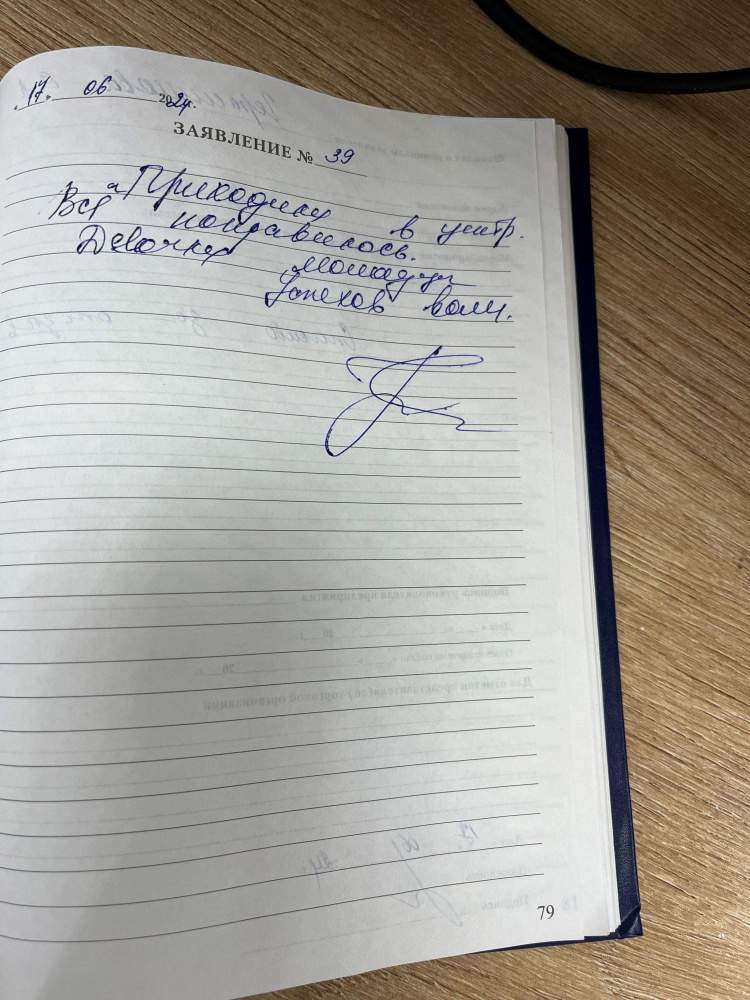 17. 06 2024г.
ЗАЯВЛЕНИЕ № 39
Приходила в центр.
Всё понравилось.
Девочки молодцы
Успехов вам.
79